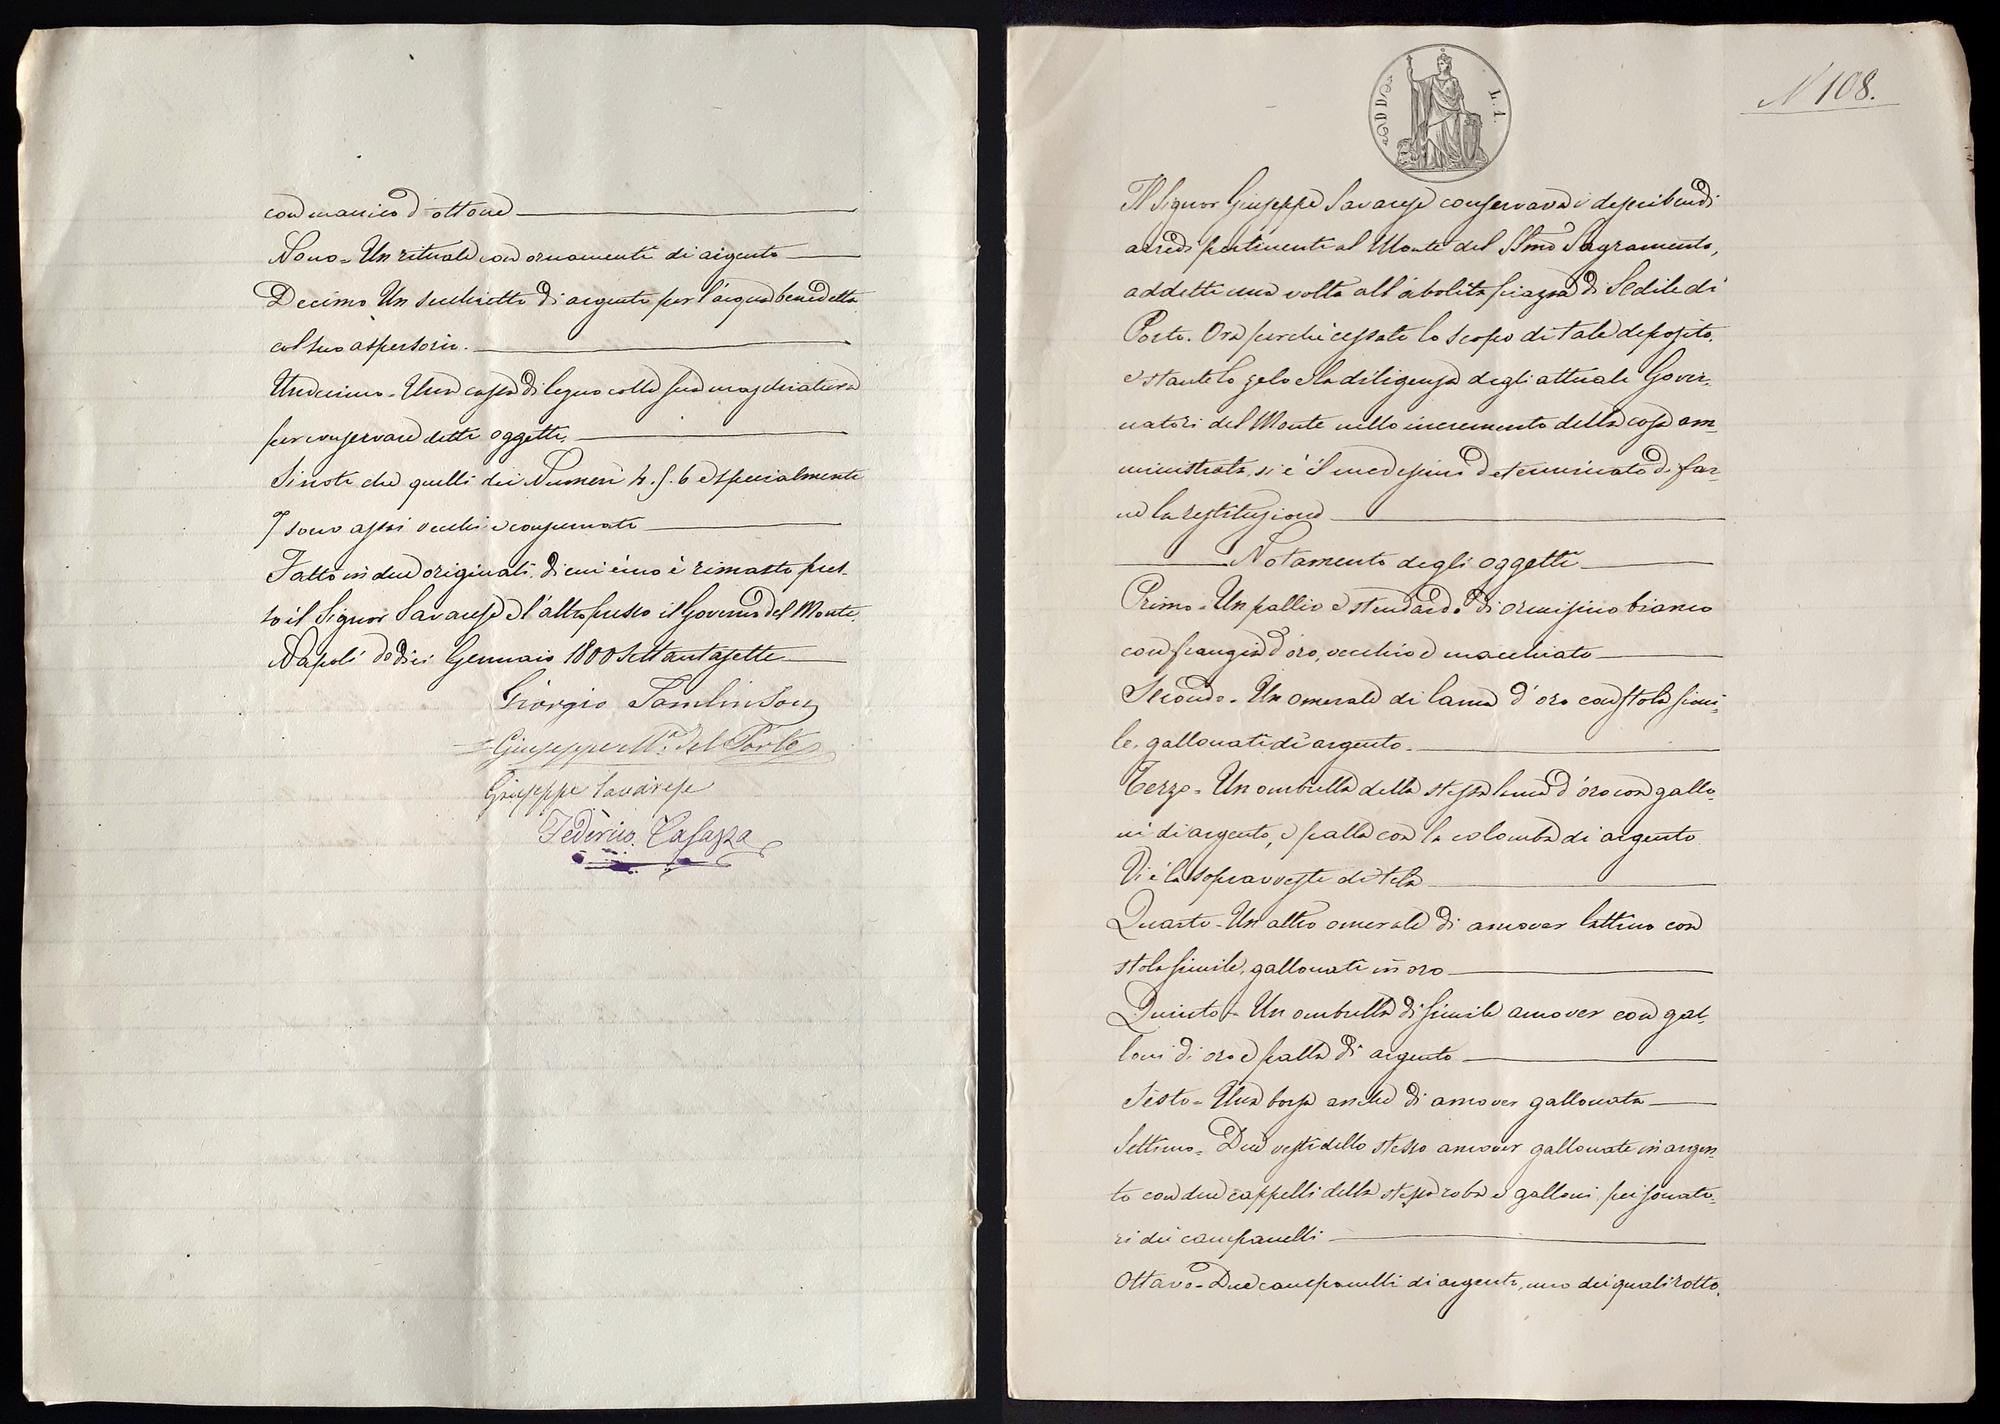 N 108.
D D
L. 1.
Il Signor Giuseppe Savarese conservava i describendi
arredi pertinenti al Monte del SSmo Sagramento,
addetti una volta all'abolita piazza di Sedile di
Porto. Ora perché cessato lo scopo di tale deposito,
e stante lo zelo e la diligenza degli attuali Gover-
natori del Monte nello incremento della cosa am-
ministrata si è il medesimo determinato di far-
ne la restituzione
Notamento degli oggetti
Primo - Un pallio e stendardo di ormisino bianco
con frangia d'oro, vecchio e macchiato
Secondo - Un omerale di lama d'oro con stola simi-
le, gallonati di argento.
Terzo - Un ombrella della stessa lama d'oro con gallo-
ni di argento, e palla con la colomba di argento
Vi è la sopravveste di tela
Quarto - Un altro omerale di amover lattino con
stola simile, gallonati in oro
Quinto - Un ombrella di simile amover con gal-
loni di oro e palla di argento
Sesto - Una borsa anche di amover gallonata
Settimo - Due vesti dello stesso amover gallonate in argen-
to con due cappelli della stessa roba e galloni pei sonato-
ri dei campanelli
Ottavo - Due campanelli di argento, uno dei quali rotto,
con manico d'ottone
Nono - Un rituale con ornamenti di argento
Decimo Un secchietto di argento per l'acqua benedetta
col suo aspersorio.
Undecimo - Una cassa di legno colla sua maschiatura
per conservare detti oggetti.
Si noti che quelli dei Numeri 4. 5. 6 e specialmente
7 sono assai vecchi e consumati
Fatto in due originali, di cui uno è rimasto pres-
so il Signor Savarese e l'altro presso il Governo del Monte.
Napoli dodici Gennaio 1800 settantasette
Giorgio Tomlinson
Giuseppe Ma. del Porto
Giuseppe Savarese
Federico Casazza